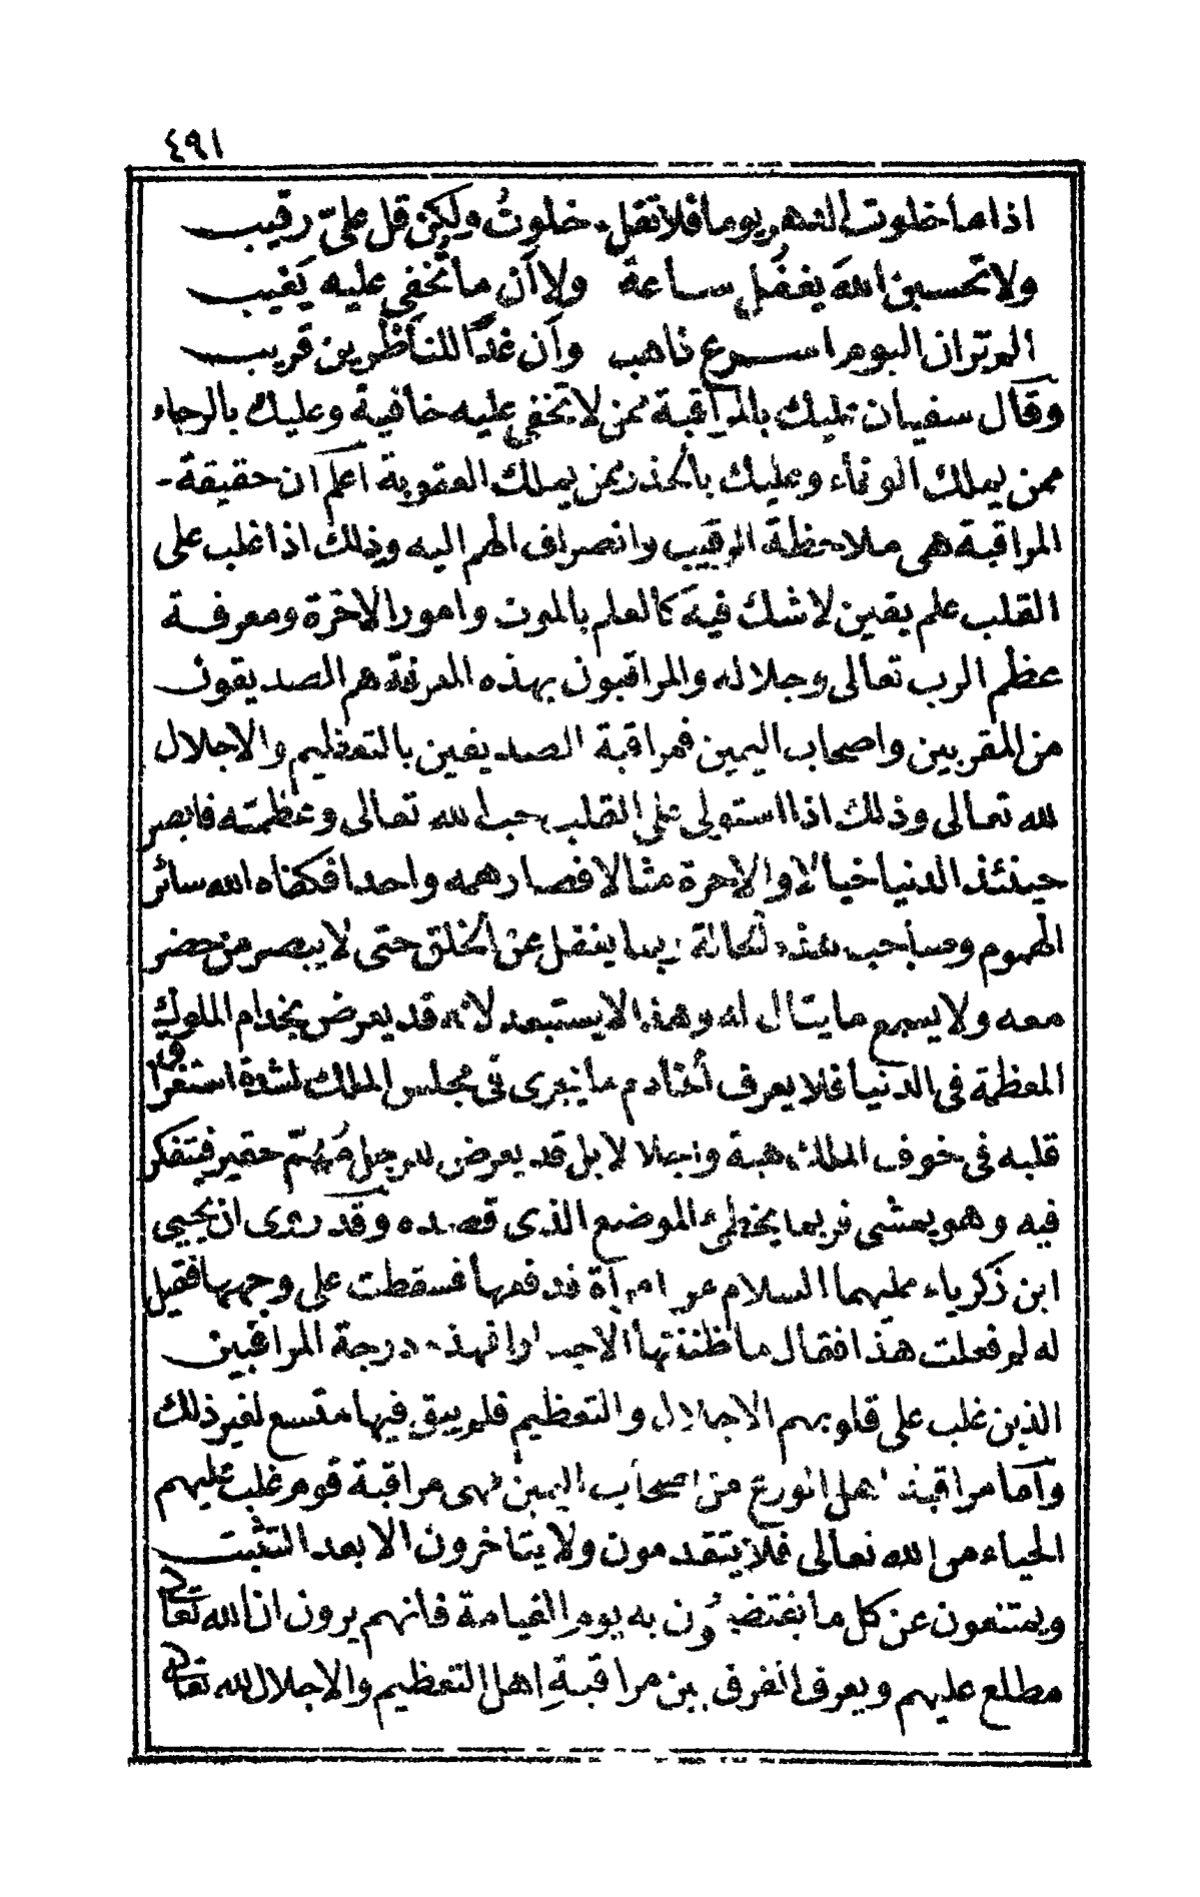 ٤٩١
اذا ما خلوت الدهر يوما فلا تقل خلوتُ ولكن قل علىّ رقيب
ولا تحسبن اللهَ يغفُل ساعة ولا أن ما تُخفى عليه يَغيب
الم تر ان اليوم اسرع ذاهب وأن غدًا للناظرين قريب
وقال سفيان عليك بالمراقبة ممن لا تخفى عليه خافية وعليك بالرجاء
ممن يملك الوفاء وعليك بالحذر ممن يملك العقوبة اعلم ان حقيقة
المراقبة هى ملاحظة الرقيب وانصراف الهم اليه وذلك اذا غلب على
القلب علم يقين لا شك فيه كالعلم بالموت وامور الاخرة ومعرفة
عظم الرب تعالى وجلاله والمراقبون بهذه المعرفة هم الصديقون
من المقربين واصحاب اليمين فمراقبة الصديقين بالتعظيم والاجلال
لله تعالى وذلك اذا استولى على القلب حب الله تعالى وعظمته فابصر
حينئذ الدنيا خيالا والاخرة مثالا فصار همه واحدا فكفاه الله سائر
الهموم وصاحب هذه الحالة ربما يغفل عن الخلق حتى لا يبصر من حضر
معه ولا يسمع ما يقال له وهذا لا يستبعد لانه قد يعرض بخدام الملوك
المعظمة فى الدنيا فلا يعرف الخادم ما يجرى فى مجلس الملك لشدة استغراق
قلبه فى خوف الملك هيبة واجلالا بل قد يعرض للرجل مُهمّ حقير فيتفكر
فيه وهو يمشى فربما يخطئ الموضع الذى قصده وقد روى ان يحيى
ابن زكرياء عليهما السلام مر امرأة فدفعها فسقطت على وجهها فقيل
له لم فعلت هذا فقال ما ظننتها الا جدارا فهذه درجة المراقبين
الذين غلب على قلوبهم الاجلال والتعظيم فلم يبق فيها متسع لغير ذلك
وأما مراقبة اهل الورع من اصحاب اليمين فهى مراقبة قوم غلب عليهم
الحياء من الله تعالى فلا يتقدمون ولا يتاخرون الا بعد التثبت
ويمتنعون عن كل ما يفتضحون به يوم القيامة فانهم يرون ان الله تعالى
مطلع عليهم ويعرف الفرق بين مراقبةِ اهل التعظيم والاجلال لله تعالى